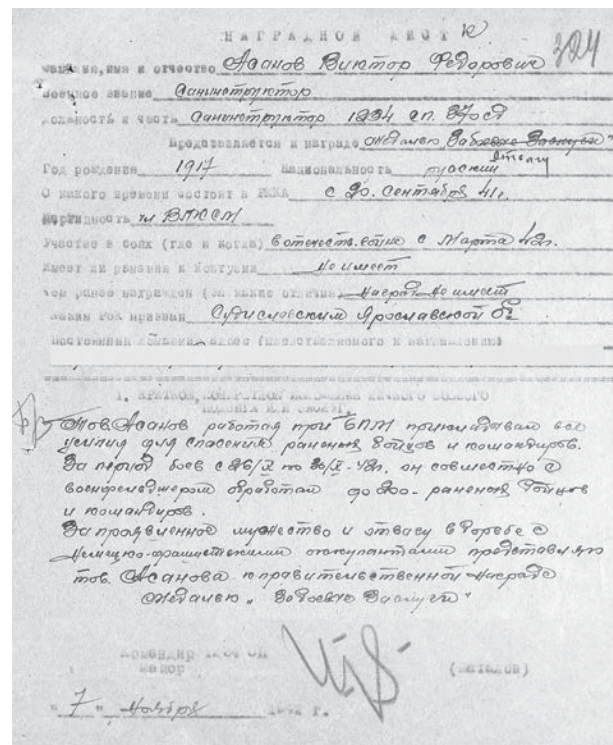 НАГРАДНОЙ ЛИСТ
324
Фамилия, имя и отчество Асанов Виктор Федорович
Военное звание Санинструктор
Должность и часть Санинструктор 1234 сп. 370 сд
Представляется к награде Медалью "За боевые Заслуги"
Отвагу
Год рождения 1917 Национальность русский
С какого времени состоит в РККА с 20. Сентября 41г.
Партийность чл ВЛКСМ
Участие в боях (где и когда) в отечеств. войне с Марта 42г.
Имеет ли ранения и контузии Не имеет
Чем ранее награжден (за какие отличия) Наград Не имеет
Каким РВК призван Судиславским Ярославской
Постоянный домашний адрес (представляемого к награждению)
1. КРАТКОЕ, КОНКРЕТНОЕ ИЗЛОЖЕНИЕ ЛИЧНОГО БОЕВОГО
Тов. Асанов работая при БПМ прикладывал все
усилия для спасения раненых бойцов и командиров.
За период боев с 26/X по 30/X-42г. он совместно с
военфельдшером обработал до 200 - раненых бойцов
и командиров.
За проявленное мужество и отвагу в борьбе с
Немецко-фашистскими оккупантами представляю
тов. Асанова к правительственной Награде
Медалью "За боевые Заслуги"
Командир СП
майор
"7" Ноября г.